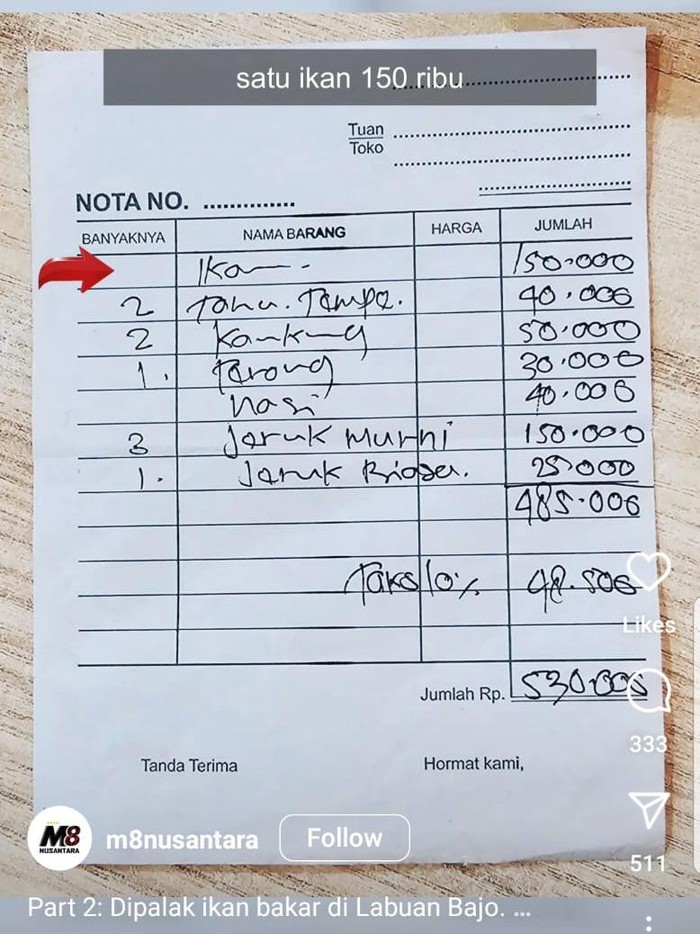 satu ikan 150 ribu
Tuan
Toko
NOTA NO.
BANYAKNYA NAMA BARANG HARGA JUMLAH
Ikan 150.000
2 Tahu. Tempe. 40.000
2 Kankung 50.000
1. Terong 30.000
Nasi 40.000
3 Jeruk Murni 150.000
1. Jeruk Biasa. 25.000
485.000
Taks 10% 48.500
Likes
Jumlah Rp. 530.000
333
Tanda Terima Hormat kami,
M8 NUSANTARA m8nusantara Follow
511
Part 2: Dipalak ikan bakar di Labuan Bajo. ...